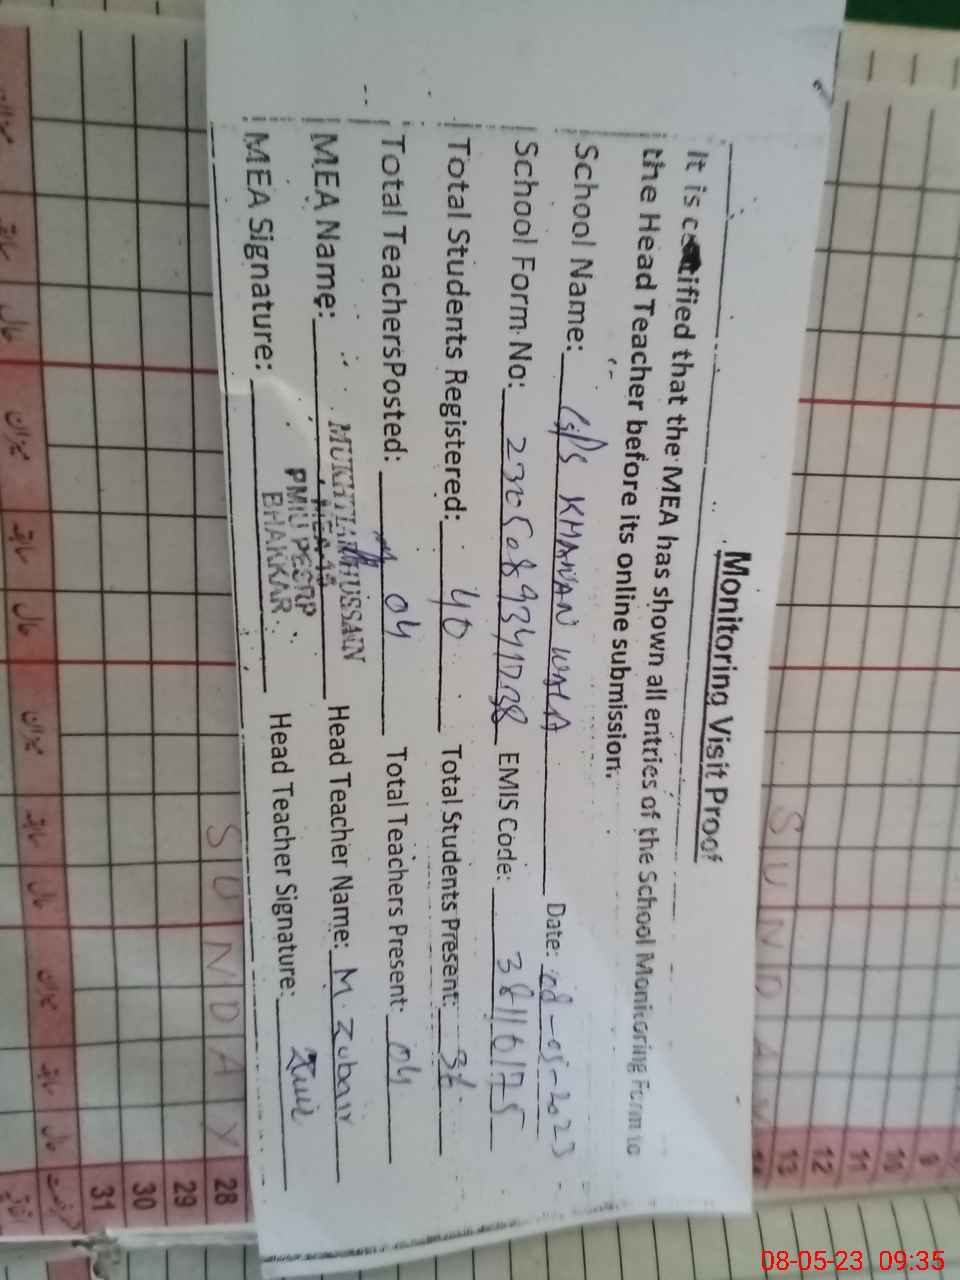 Monitoring Visit Proof
It is certified that the MEA has shown all entries of the School Monitoring Form to
the Head Teacher before its online submission.
School Name: G/P/S KHANAN WALA Date: 08-05-2023
School Form No: EMIS Code: 38110175
Total Students Registered: 40 Total Students Present: 36
Total TeachersPosted: 04 Total Teachers Present: 04
MEA Name: MUKHTIAR HUSSAIN Head Teacher Name: M. Zubair
MEA Signature: PMIU PESRP Head Teacher Signature:
BHAKKAR
SUNDAY
SUNDAY
9
10
11
12
13
28
29
30
31
08-05-23 09:35